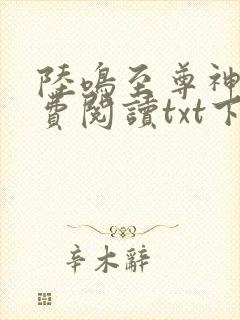 陸鳴至尊神
費閱讀txt下
辛木辭